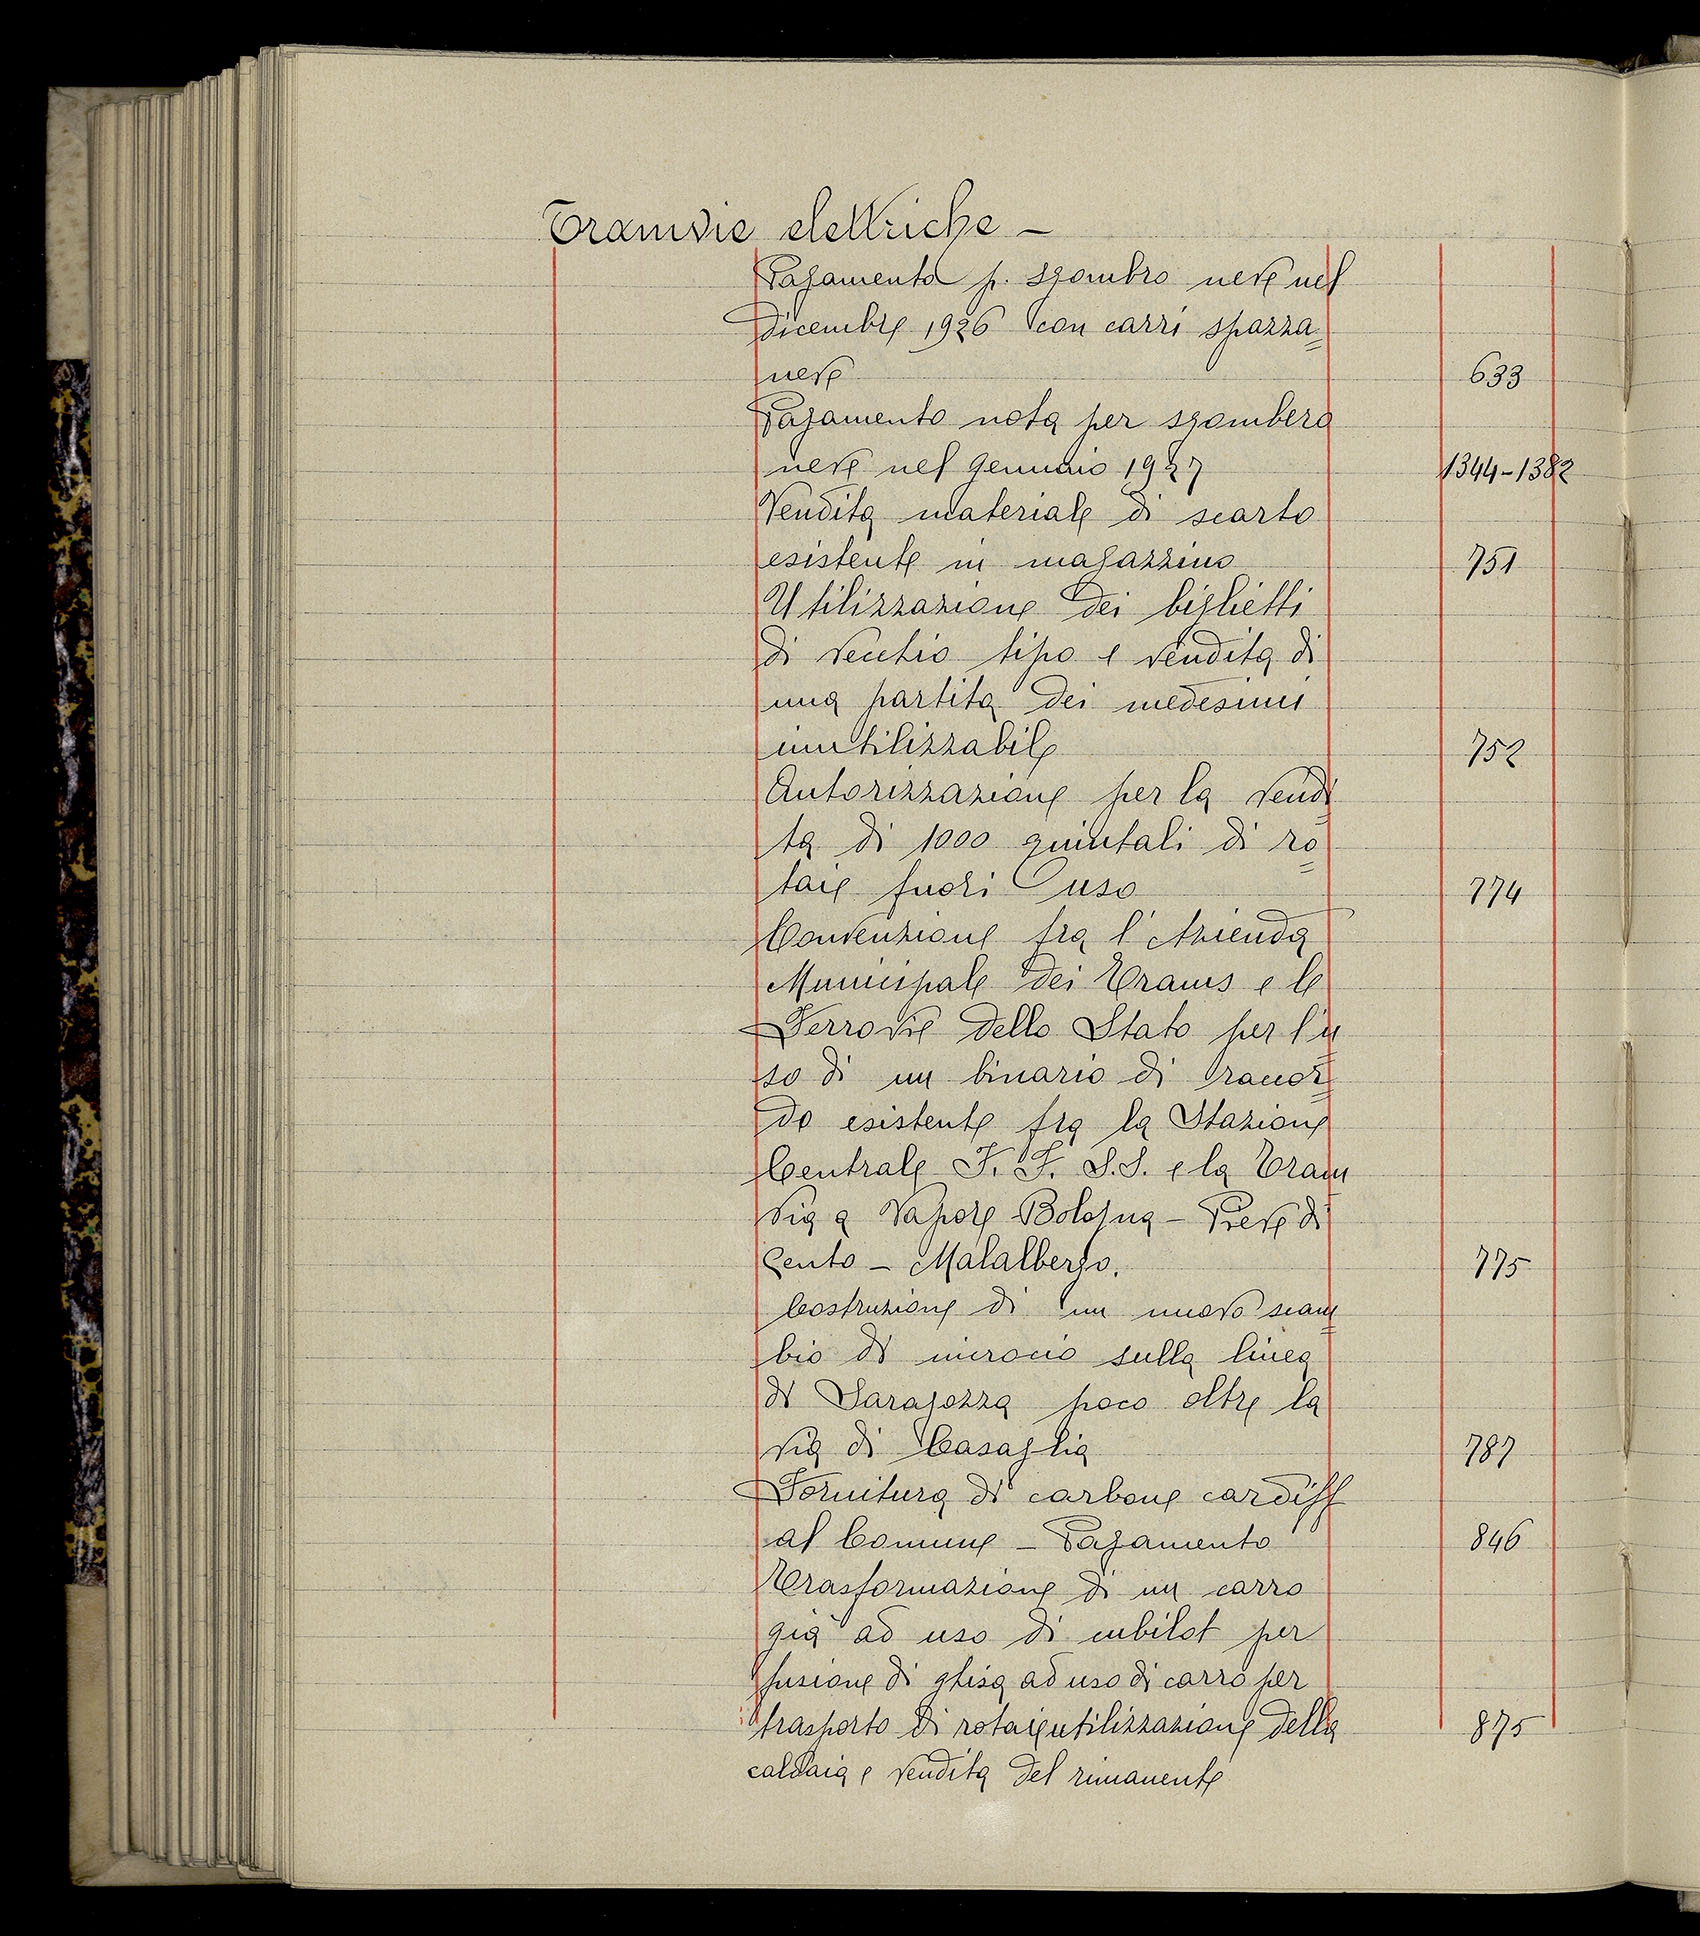 Tramvie elettriche –
Pagamento p. sgombro neve nel
dicembre 1926 con carri spazza=
neve 633
Pagamento nota per sgombero
neve nel gennaio 1927 1344-1382
Vendita materiale di scarto
esistente in magazzino 751
Utilizzazione dei biglietti
di vecchio tipo e vendita di
una partita dei medesimi
inutilizzabile 752
Autorizzazione per la vendi=
ta di 1000 quintali di ro=
taie fuori uso 774
Convenzione fra l'Azienda
Municipale dei Trams e le
Ferrovie dello Stato per l'u=
so di un binario di raccor=
do esistente fra la Stazione
Centrale F. F. S.S. e la Tram
via a Vapore Bologna – Pieve di
Cento – Malalbergo. 775
Costruzione di un nuovo scam=
bio di incrocio sulla linea
di Saragozza poco oltre la
via di Casaglia 787
Fornitura di carbone cardiff
al Comune – Pagamento 846
Trasformazione di un carro
già ad uso di cubilot per
fusione di ghisa ad uso di carro per
trasporto di rotaie utilizzazione della 875
caldaia e vendita del rimanente